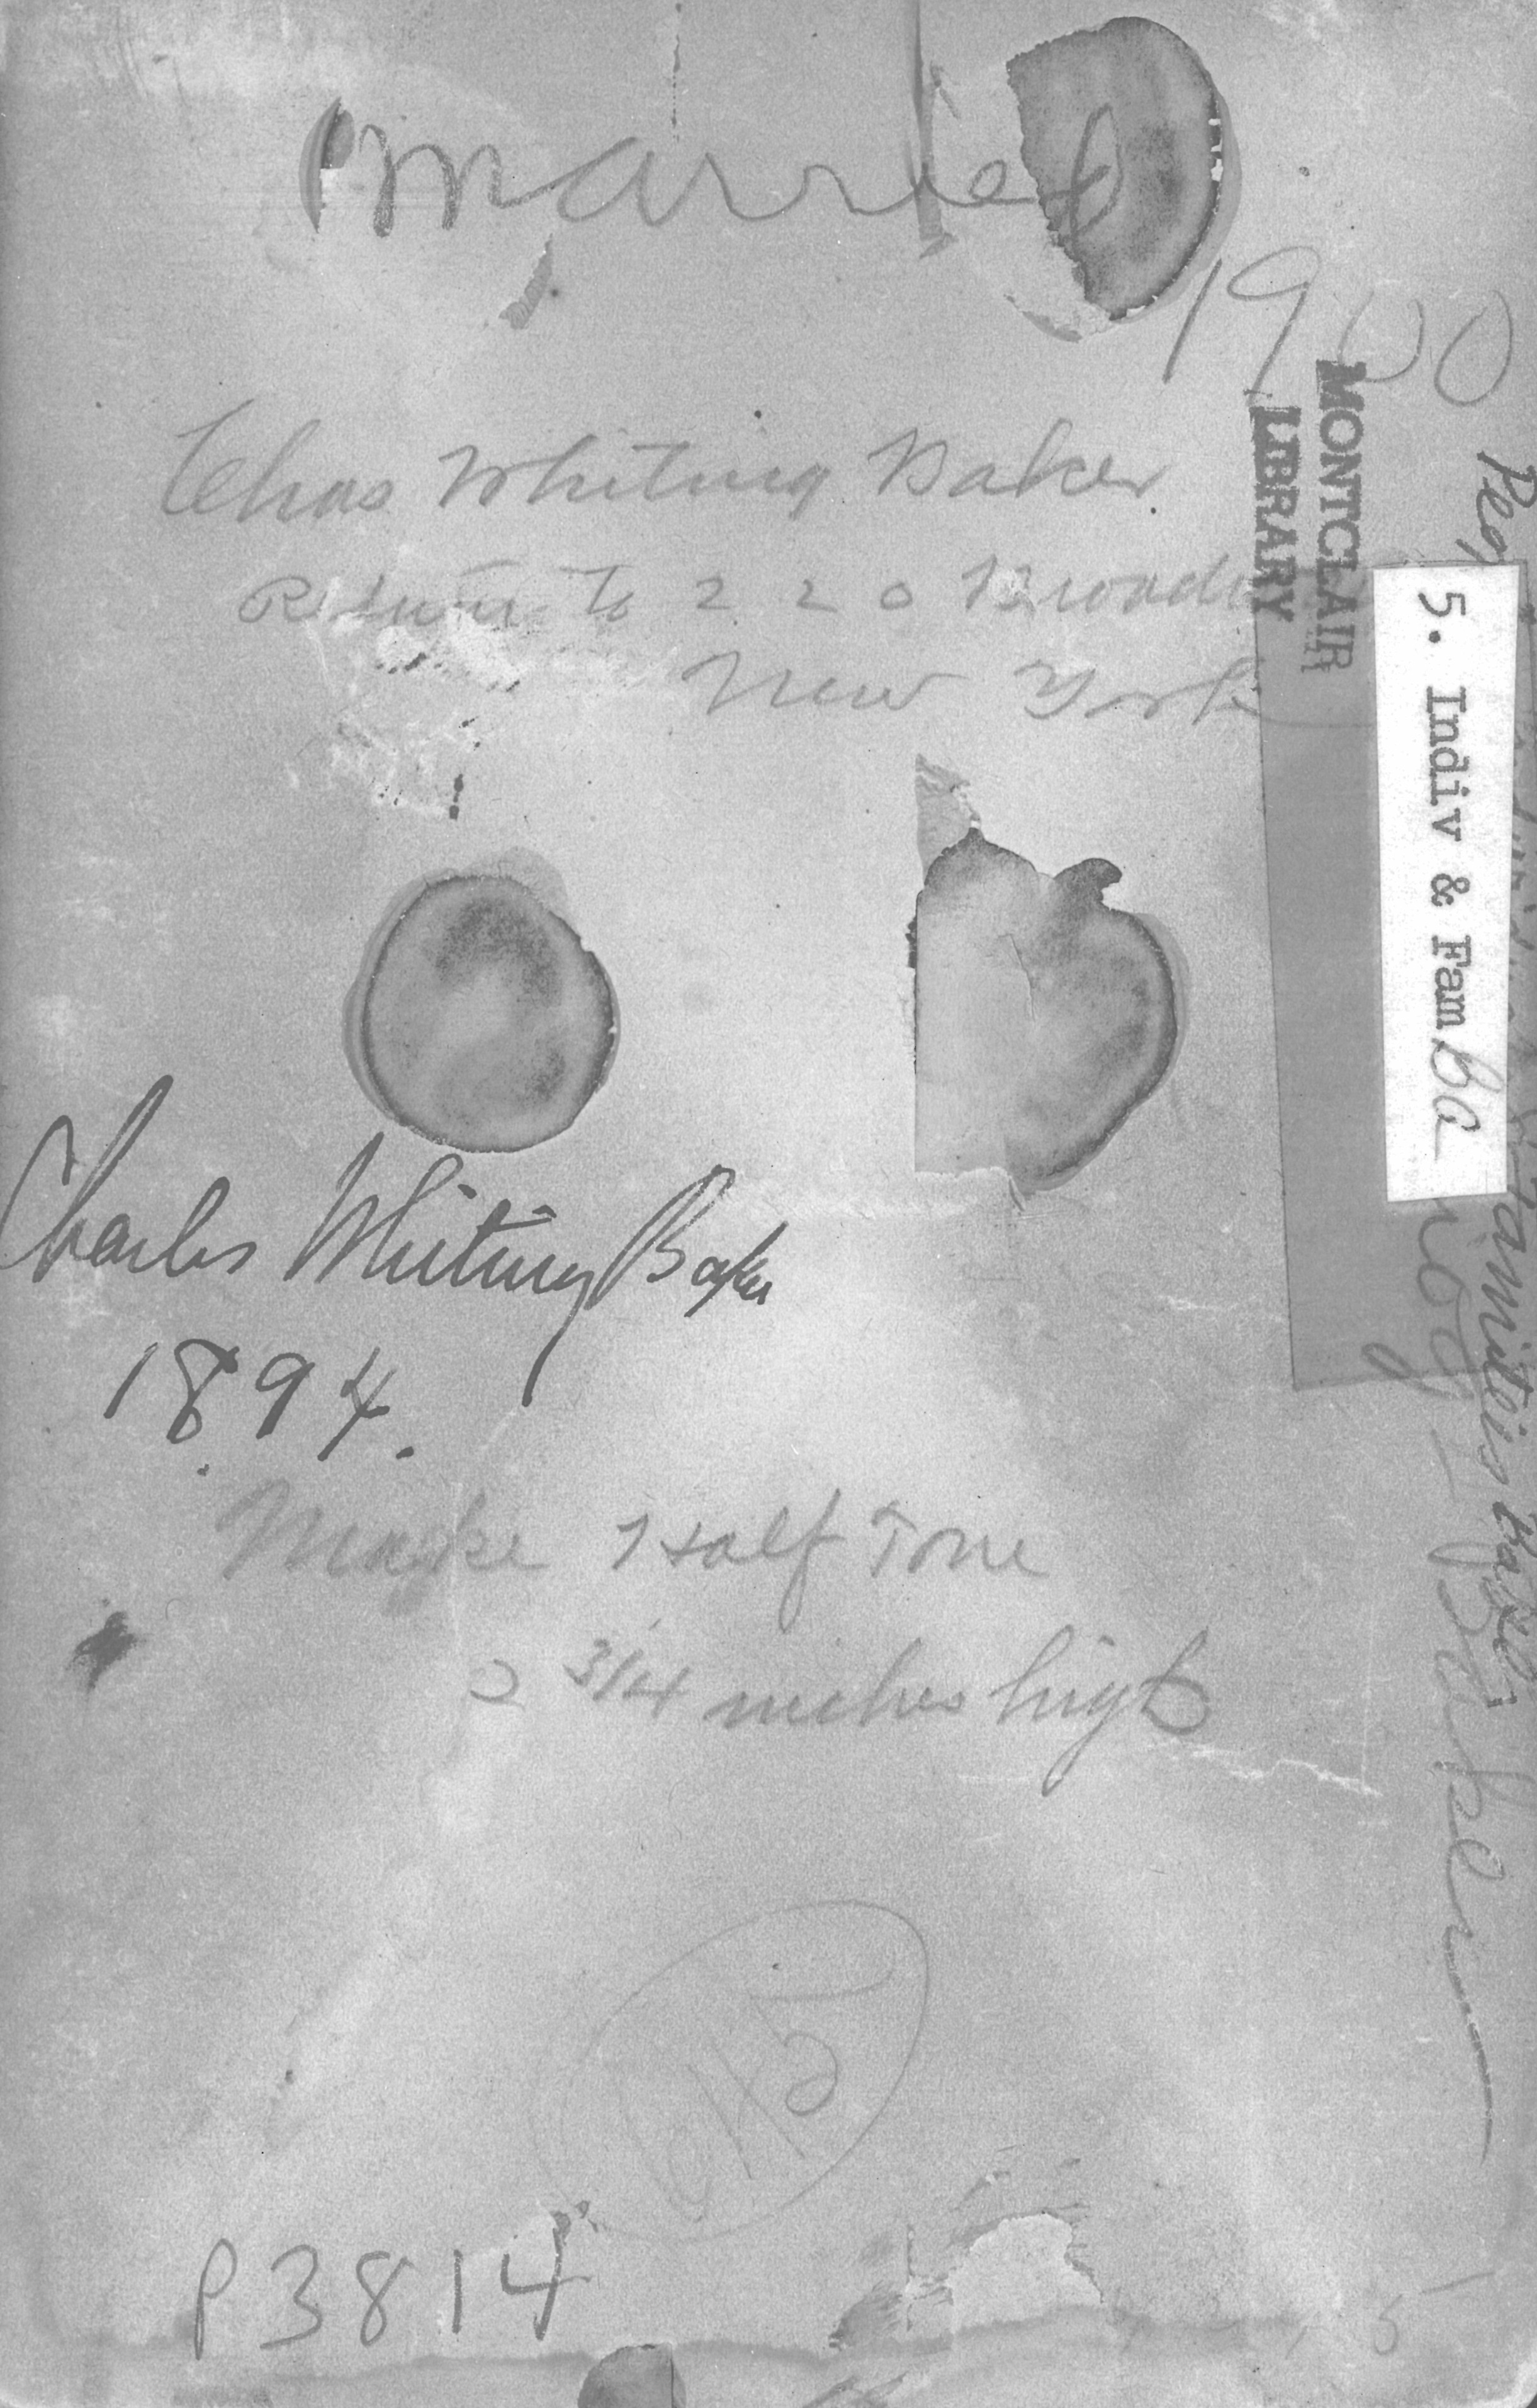 married
1900
Chas Whiting Baker
Return to 220
New York
MONTCLAIR
LIBRARY
5. Indiv & Fam Ba
Charles Whiting Baker
1894.
Make Half Tone
2 3/4 inches high
P3814
families
Baker
5